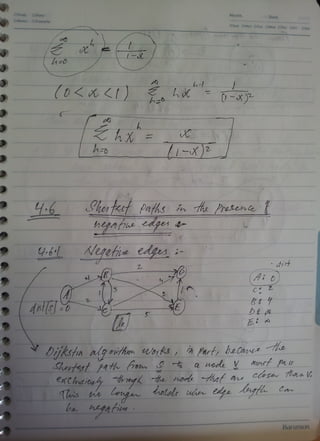 ∞ Σ n=0 x^n = 1/(1-x)
(0 < x < 1) ∞ Σ n=0 n x^(n-1) = 1/(1-x)^2
∞ Σ n=0 n x^n = x/(1-x)^2
4.6 Shortest paths in the presence of
negative edges :-
4.6.1 Negative edges :-
dist
A: 0
C: 2
B: 4
D: ∞
E: ∞
2
4
B
D
A
dist[s] = 0
2
C
5
E
Dijkstra algorithm works, in part, because the
shortest path from S to a node V must pass
exclusively through the node that are closer than V.
This no longer holds when edge length can
be negative.